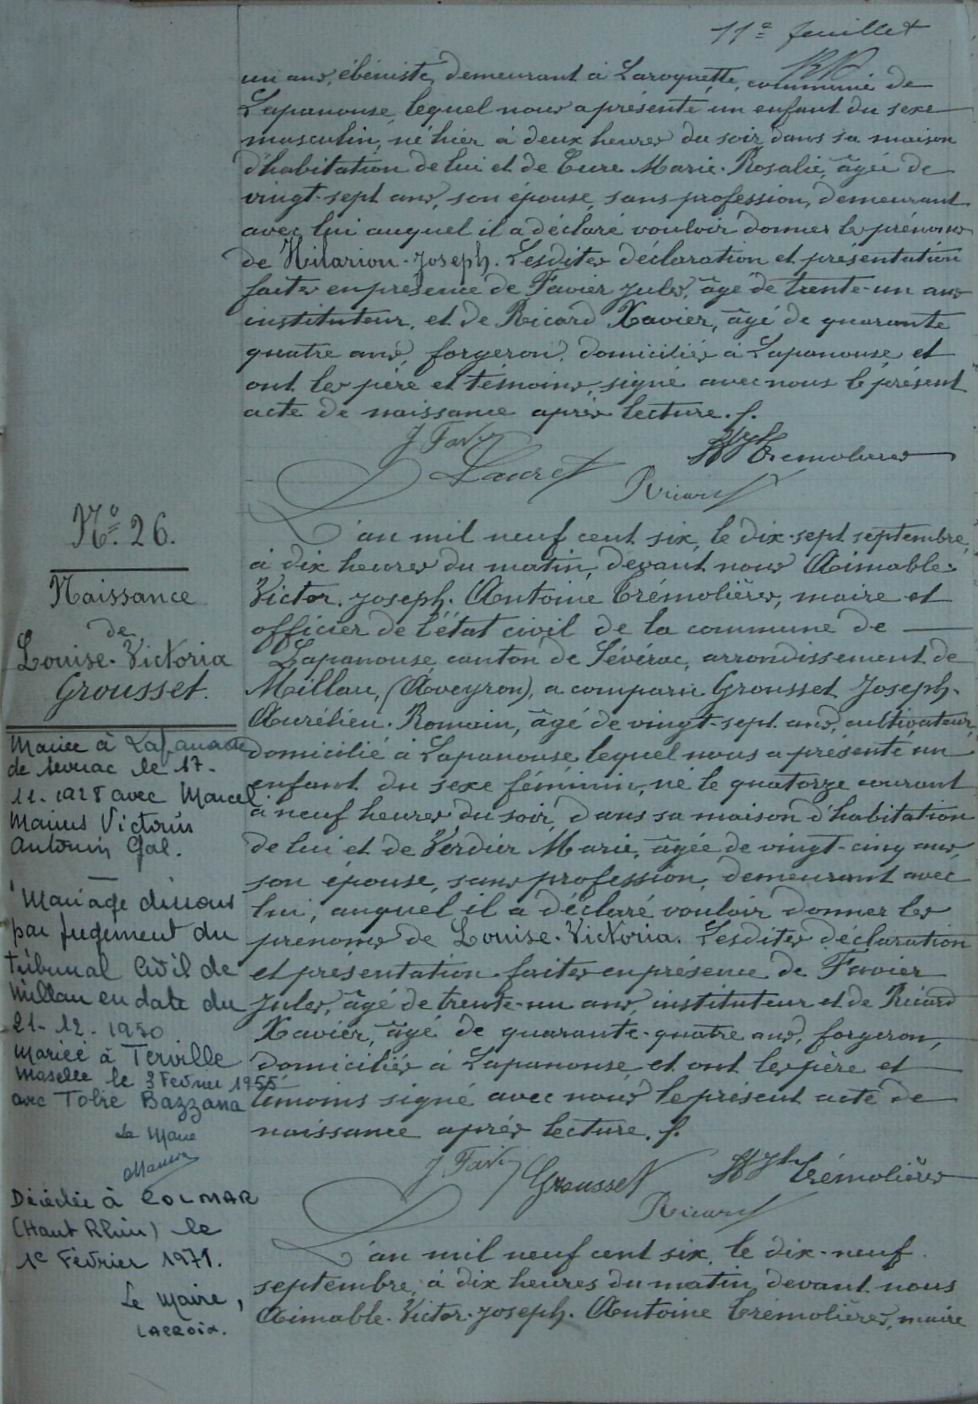 11e feuillet
un ans, ébéniste, demeurant à Laroquette, commune de
Lapanouse, lequel nous a présenté un enfant du sexe
masculin, né hier à deux heures du soir, dans sa maison
d'habitation de lui et de Cure Marie-Rosalie, âgée de
vingt-sept ans, son épouse, sans profession, demeurant
avec lui auquel il a déclaré vouloir donner les prénoms
de Hilarion-Joseph. Lesdites déclaration et présentation
faites en présence de Favier Jules, âgé de trente-un ans
instituteur, et de Ricard Xavier, âgé de quarante
quatre ans, forgeron, domiciliés à Lapanouse, et
ont les père et témoins, signé avec nous le présent
acte de naissance après lecture.
J Favier
Lauret
Trémolières
Ricard
No. 26.
Naissance
de
Louise-Victoria
Grousset.
L'an mil neuf cent six, le dix-sept septembre,
à dix heures du matin, devant nous Aimable-
Victor-Joseph-Antoine Trémolières, maire et
officier de l'état civil de la commune de
Lapanouse, canton de Sévérac, arrondissement de
Millau, (Aveyron), a comparu Grousset Joseph-
Aurélien-Romain, âgé de vingt-sept ans, cultivateur,
domicilié à Lapanouse, lequel nous a présenté un
enfant du sexe féminin, né le quatorze courant
à neuf heures du soir, dans sa maison d'habitation
de lui et de Verdier Marie, âgée de vingt-cinq ans,
son épouse, sans profession, demeurant avec
lui, auquel il a déclaré vouloir donner les
prénoms de Louise-Victoria. Lesdites déclaration
et présentation faites en présence de Favier
Jules, âgé de trente-un ans, instituteur et de Ricard
Xavier, âgé de quarante-quatre ans, forgeron,
domiciliés à Lapanouse, et ont les père et
témoins signé avec nous le présent acte de
naissance après lecture.
J. Favier
Grousset
Trémolières
Ricard
Mariée à Lapanouse
de Séverac le 17-
11-1928 avec Marcel
Marius Victorin
Antonin Gal.
Mariage dissous
par jugement du
tribunal Civil de
Millau en date du
21-12-1950
Mariée à Terville
Moselle le 3 Février 1955
avec Tobie Bazzana
Le Maire
Décédée à COLMAR
(Haut Rhin) le
1er Février 1971.
Le Maire,
LACROIX.
L'an mil neuf cent six, le dix-neuf
septembre, à dix heures du matin, devant nous
Aimable-Victor-Joseph-Antoine Trémolières, maire